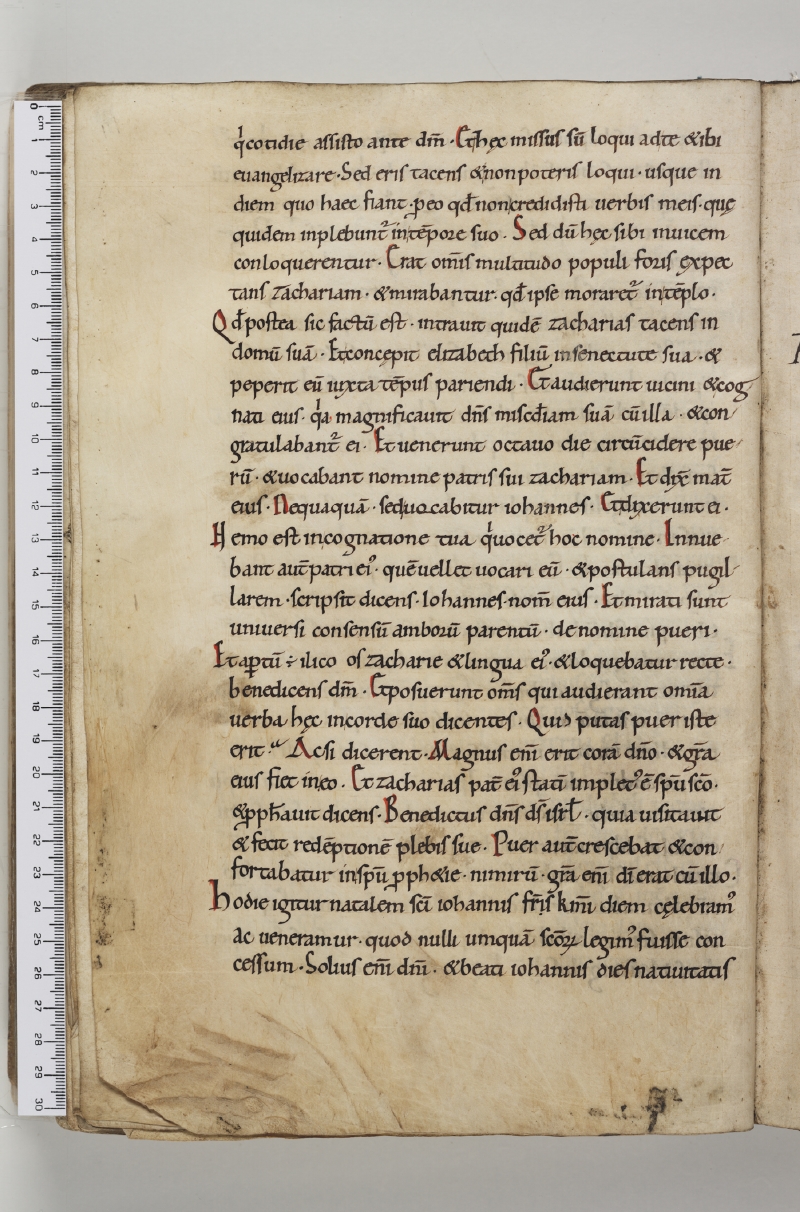 qͥ cotidie assisto ante dm̄ · Et hęc missus sū loqui ad te & ibi
euangelizare · Sed eris tacens & non poteris loqui · usque in
diem quo haec fiant · p eo qđ non credidisti uerbis meis · quę
quidem inplebunt᷑ in tēpore suo · Sed dū hęc sibi inuicem
conloquerentur · Erat om̄is multitudo populi foris expec
tans zachariam · & mirabantur · qđ ipse moraret᷑ in tēplo ·
Qđ postea sic factū est · intrauit quidē zacharias tacens in
domū suā · Et concepit elizabeth filiū in senectute sua · &
peperit eū iuxta tēpus pariendi · Et audierunt uicini & cog
nati eius · qͥa magnificauit dn̄s misc̄diam suā cū illa · & con
gratulabant᷑ ei · Et uenerunt octauo die circūcidere pue
rū · & uocabant nomine patris sui zachariam · Et dix̄ mat̄
eius · Nequaquā · sed uocabitur iohannes · Et dixerunt ei ·
Nemo est in cognatione tua qͥ uocet᷑ hoc nomine · Innue
bant aut̄ patri eiꝰ · quē uellet uocari eū · & postulans pugil
larem · scripsit dicens · Iohannes · nom̄ eius · Et mirati sunt
uniuersi consensū amborū parentū · de nomine pueri ·
Et aꝑtū ÷ ilico os zacharie & lingua eiꝰ · & loquebatur recte ·
benedicens dm̄ · Et posuerunt om̄s qui audierant om̄ia
uerba hęc in corde suo dicentes · Quid putas puer iste
erit · Ac si dicerent · Magnus eni͞ erit corā dn̄o · & gr̄a
eius fiet in eo · Et zacharias pat̄ eiꝰ statī implet᷑ ē sp̄u sc̄o ·
& pph̄auit dicens · Benedictus dn̄s ds̄ isrł · quia uisitauit
& fecit redēptionē plebis suę · Puer aut̄ crescebat & con
fortabatur in sp̄u pph&ie · nimirū · gr̄a eni͞ dī erat cū illo ·
hodie igitur natalem sc̄i iohannis fr̄s km̄i diem cęlebramꝰ
ac ueneramur · quod nulli umquā sc̄oꝝ legimꝰ fuisse con
cessum · Solius eni͞ dn̄i · & beati iohannis dies natiuitatis